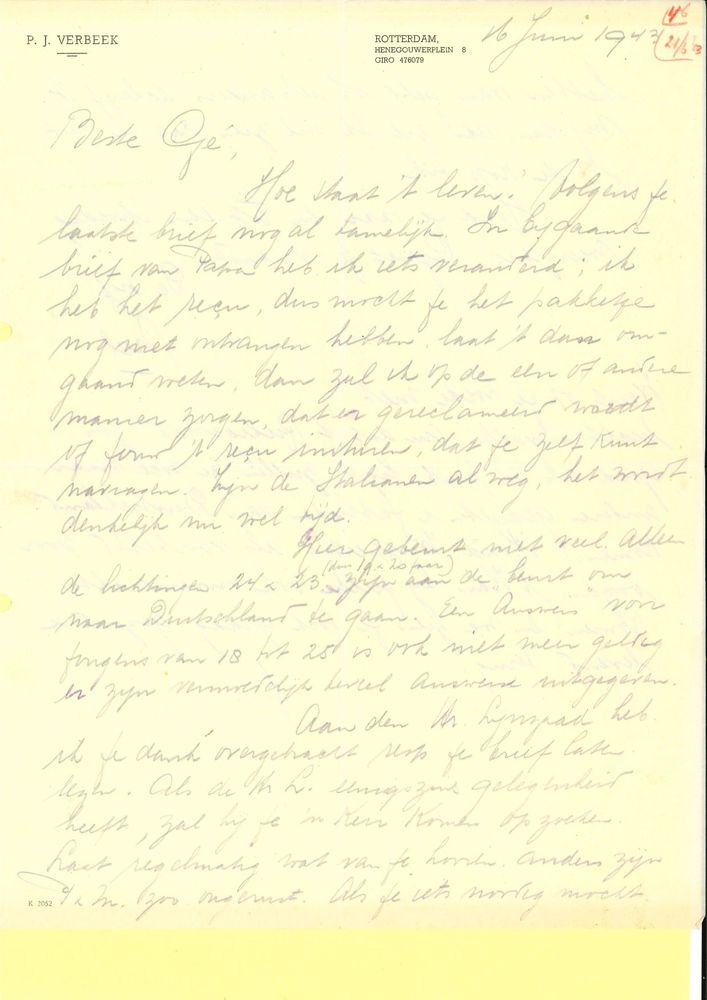 P. J. VERBEEK
ROTTERDAM,
HENEGOUWERPLEIN 8
GIRO 476079
16 Juni 1943
46
21/6
Beste Gé,
Hoe staat 't leven? Volgens je
laatste brief nog al tamelijk. In bijgaande
brief van Papa heb ik iets veranderd; ik
heb het reçu, dus mocht je het pakketje
nog niet ontvangen hebben, laat 't dan om-
gaand weten, dan zal ik op de een of andere
manier zorgen, dat er gereclameerd wordt
of jouw 't reçu insturen, dat je zelf kunt
navragen. Zijn de Italianen al weg, het wordt
denkelijk nu wel tijd.
Hier gebeurt niet veel. Alleen
de lichtingen 24 & 23 (dus 19 & 20 jaar) zijn aan de "beurt" om
naar Duitschland te gaan. Een "Ausweis" voor
jongens van 18 tot 25 is ook niet meer geldig
er zijn vermoedelijk teveel Ausweise uitgegeven.
Aan den Hr. Lijnzaad heb
ik je dank overgebracht resp. je brief laten
lezen. Als de Hr L. eenigszins gelegenheid
heeft, zal hij je 'n keer komen opzoeken.
Laat regelmatig wat van je hooren. anders zijn
P & M. zoo ongerust. Als je iets noodig mocht
K 2052